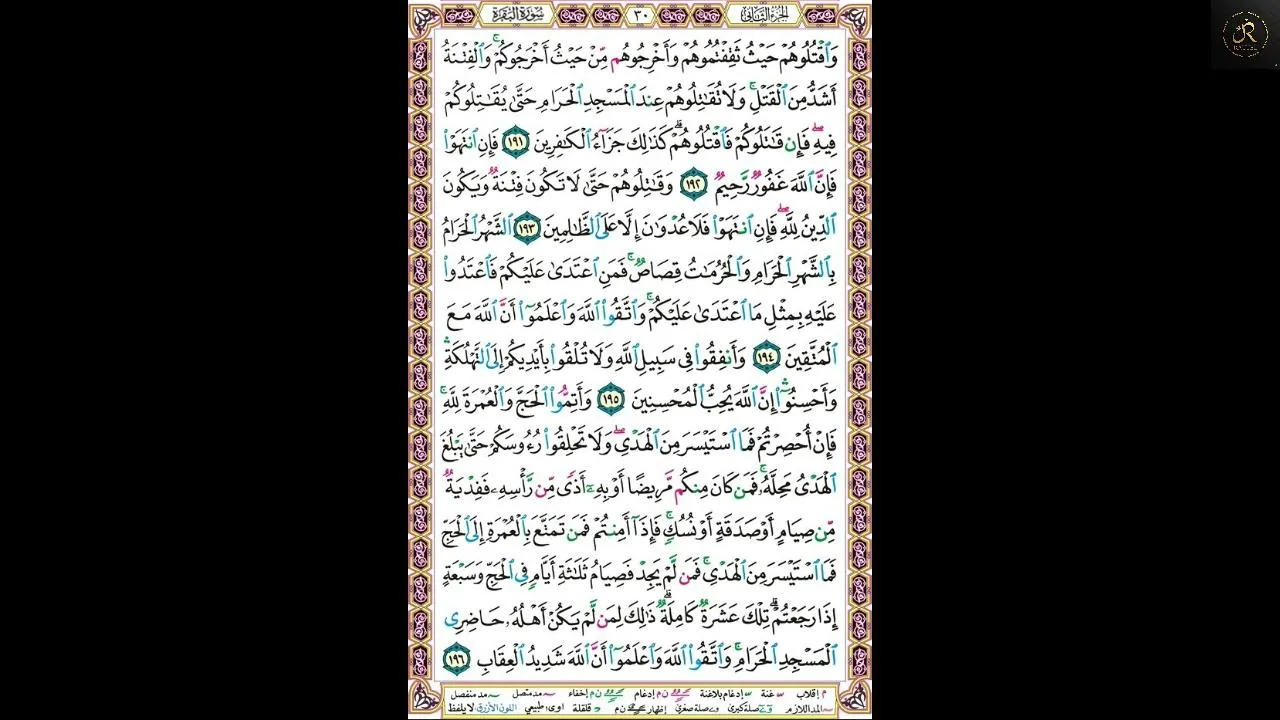 الجزء الثاني ٣٠ سورة البقرة
وَٱقْتُلُوهُمْ حَيْثُ ثَقِفْتُمُوهُمْ وَأَخْرِجُوهُم مِّنْ حَيْثُ أَخْرَجُوكُمْ ۚ وَٱلْفِتْنَةُ
أَشَدُّ مِنَ ٱلْقَتْلِ ۚ وَلَا تُقَٰتِلُوهُمْ عِندَ ٱلْمَسْجِدِ ٱلْحَرَامِ حَتَّىٰ يُقَٰتِلُوكُمْ
فِيهِ ۖ فَإِن قَٰتَلُوكُمْ فَٱقْتُلُوهُمْ ۗ كَذَٰلِكَ جَزَآءُ ٱلْكَٰفِرِينَ ١٩١ فَإِنِ ٱنتَهَوْا۟
فَإِنَّ ٱللَّهَ غَفُورٌ رَّحِيمٌ ١٩٢ وَقَٰتِلُوهُمْ حَتَّىٰ لَا تَكُونَ فِتْنَةٌ وَيَكُونَ
ٱلدِّينُ لِلَّهِ ۖ فَإِنِ ٱنتَهَوْا۟ فَلَا عُدْوَٰنَ إِلَّا عَلَى ٱلظَّٰلِمِينَ ١٩٣ ٱلشَّهْرُ ٱلْحَرَامُ
بِٱلشَّهْرِ ٱلْحَرَامِ وَٱلْحُرُمَٰتُ قِصَاصٌ ۚ فَمَنِ ٱعْتَدَىٰ عَلَيْكُمْ فَٱعْتَدُوا۟
عَلَيْهِ بِمِثْلِ مَا ٱعْتَدَىٰ عَلَيْكُمْ ۚ وَٱتَّقُوا۟ ٱللَّهَ وَٱعْلَمُوٓا۟ أَنَّ ٱللَّهَ مَعَ
ٱلْمُتَّقِينَ ١٩٤ وَأَنفِقُوا۟ فِى سَبِيلِ ٱللَّهِ وَلَا تُلْقُوا۟ بِأَيْدِيكُمْ إِلَى ٱلتَّهْلُكَةِ ۛ
وَأَحْسِنُوٓا۟ ۛ إِنَّ ٱللَّهَ يُحِبُّ ٱلْمُحْسِنِينَ ١٩٥ وَأَتِمُّوا۟ ٱلْحَجَّ وَٱلْعُمْرَةَ لِلَّهِ ۚ
فَإِنْ أُحْصِرْتُمْ فَمَا ٱسْتَيْسَرَ مِنَ ٱلْهَدْىِ ۖ وَلَا تَحْلِقُوا۟ رُءُوسَكُمْ حَتَّىٰ يَبْلُغَ
ٱلْهَدْىُ مَحِلَّهُۥ ۚ فَمَن كَانَ مِنكُم مَّرِيضًا أَوْ بِهِۦٓ أَذًى مِّن رَّأْسِهِۦ فَفِدْيَةٌ
مِّن صِيَامٍ أَوْ صَدَقَةٍ أَوْ نُسُكٍ ۚ فَإِذَآ أَمِنتُمْ فَمَن تَمَتَّعَ بِٱلْعُمْرَةِ إِلَى ٱلْحَجِّ
فَمَا ٱسْتَيْسَرَ مِنَ ٱلْهَدْىِ ۚ فَمَن لَّمْ يَجِدْ فَصِيَامُ ثَلَٰثَةِ أَيَّامٍ فِى ٱلْحَجِّ وَسَبْعَةٍ
إِذَا رَجَعْتُمْ ۗ تِلْكَ عَشَرَةٌ كَامِلَةٌ ۗ ذَٰلِكَ لِمَن لَّمْ يَكُنْ أَهْلُهُۥ حَاضِرِى
ٱلْمَسْجِدِ ٱلْحَرَامِ ۚ وَٱتَّقُوا۟ ٱللَّهَ وَٱعْلَمُوٓا۟ أَنَّ ٱللَّهَ شَدِيدُ ٱلْعِقَابِ ١٩٦
م إقلاب غنة إدغام بلاغنة ن م إدغام ن م إخفاء مد متصل مد منفصل
المد اللازم صلة كبرى صلة صغرى إظهار ن م قلقلة اوى: طبيعي اللون الأزرق لا يلفظ